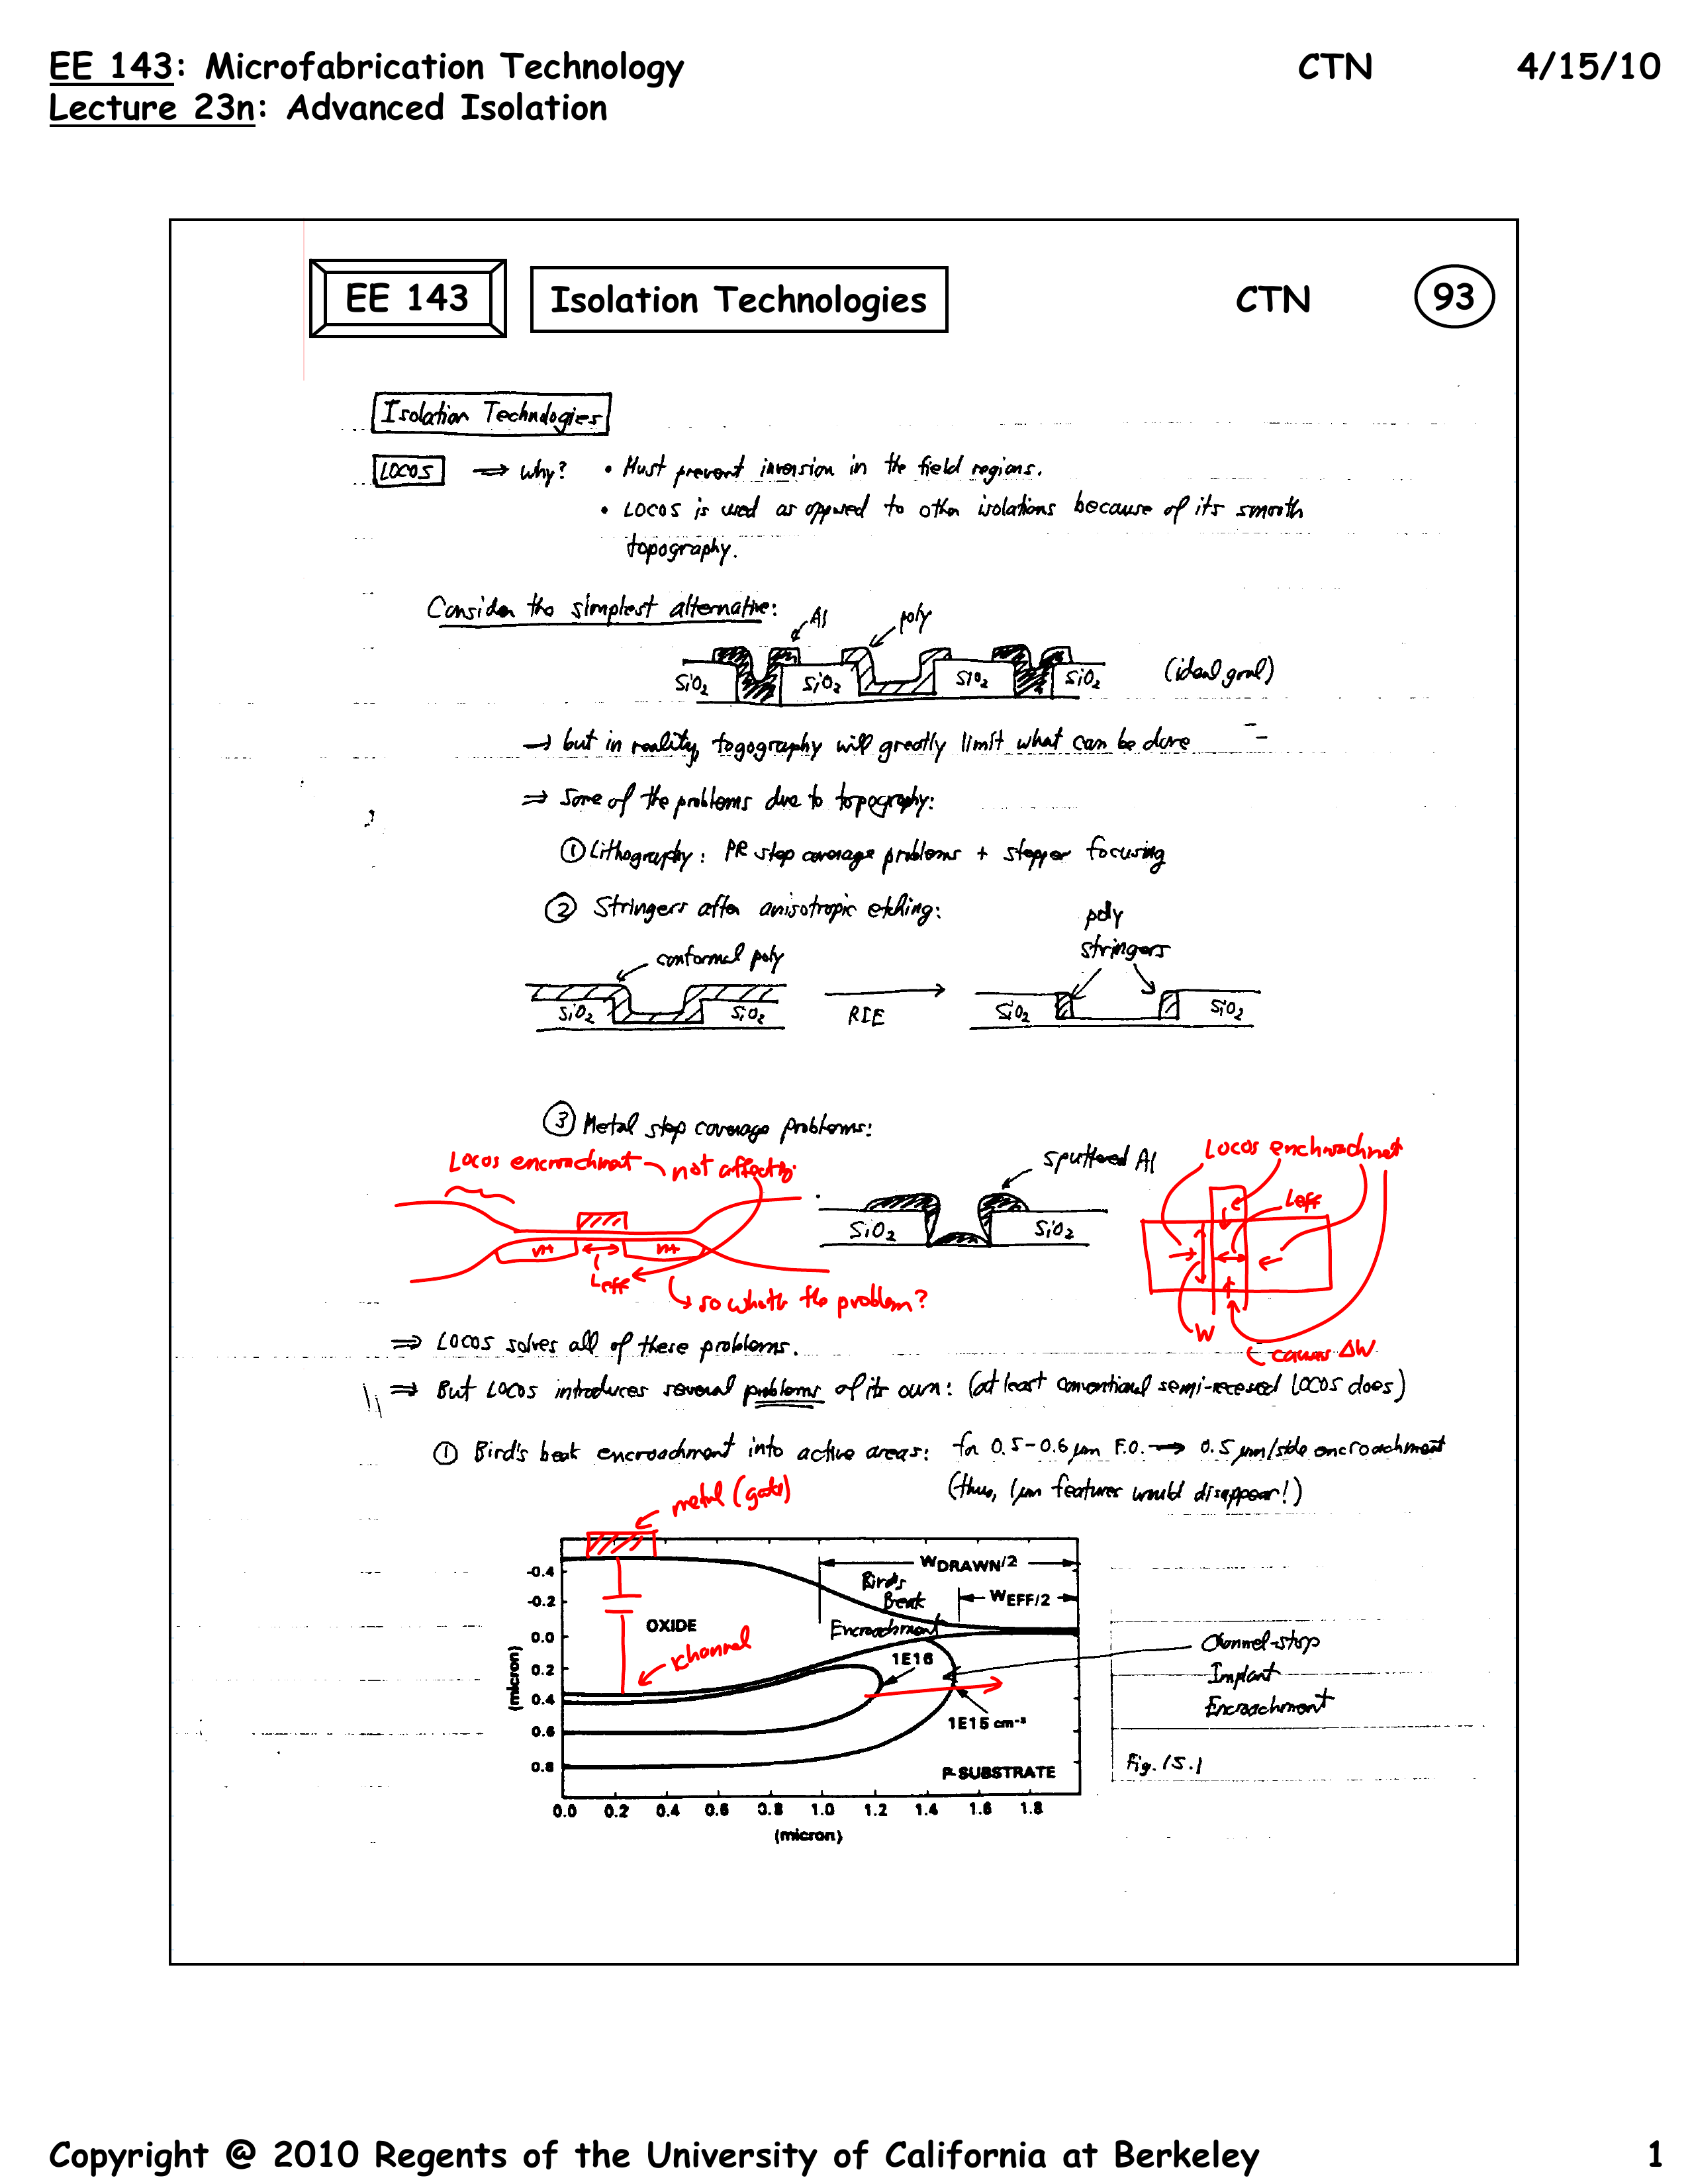 EE 143: Microfabrication Technology CTN 4/15/10
Lecture 23n: Advanced Isolation
EE 143 Isolation Technologies CTN 93
Isolation Technologies
LOCOS ⇒ why? • Must prevent inversion in the field regions.
• LOCOS is used as opposed to other isolations because of its smooth
topography.
Consider the simplest alternative:
Al poly
SiO2 SiO2 SiO2 SiO2 (ideal goal)
→ but in reality, togography will greatly limit what can be done
⇒ Some of the problems due to topography:
① Lithography: PR step coverage problems + stepper focusing
② Stringers after anisotropic etching:
poly
stringers
conformal poly
SiO2 SiO2 RIE SiO2 SiO2
③ Metal step coverage problems:
Locos encroachment not affecting
sputtered Al
Locos enchroachment
Leff
SiO2 SiO2
n+ n+
Leff
so what's the problem?
W
causes ΔW
⇒ LOCOS solves all of these problems.
⇒ But LOCOS introduces several problems of its own: (at least conventional semi-recessed LOCOS does)
① Bird's beak encroachment into active areas: for 0.5-0.6 µm F.O. → 0.5 µm/side encroachment
(thus, 1µm features would disappear!)
metal (gate)
WDRAWN/2
Bird's
Beak
Encroachment
WEFF/2
OXIDE
channel
1E16
1E15 cm-3
P-SUBSTRATE
Channel-stop
Implant
Encroachment
Fig. 15.1
-0.4
-0.2
0.0
0.2
0.4
0.6
0.8
(micron)
0.0 0.2 0.4 0.6 0.8 1.0 1.2 1.4 1.6 1.8
(micron)
Copyright @ 2010 Regents of the University of California at Berkeley 1